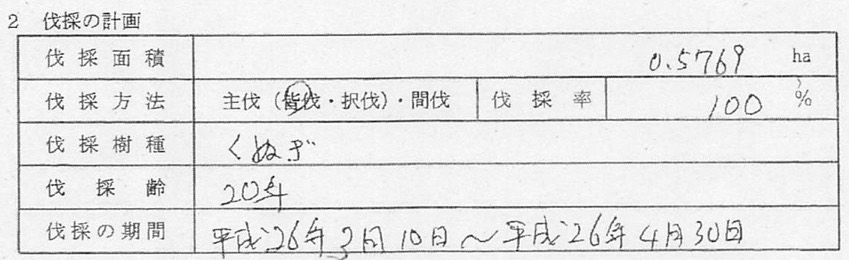 2 伐採の計画
伐採面積 0.5769 ha
伐採方法 主伐(皆伐・択伐)・間伐 伐採率 100 %
伐採樹種 くぬぎ
伐採齢 20年
伐採の期間 平成26年3月10日～平成26年4月30日